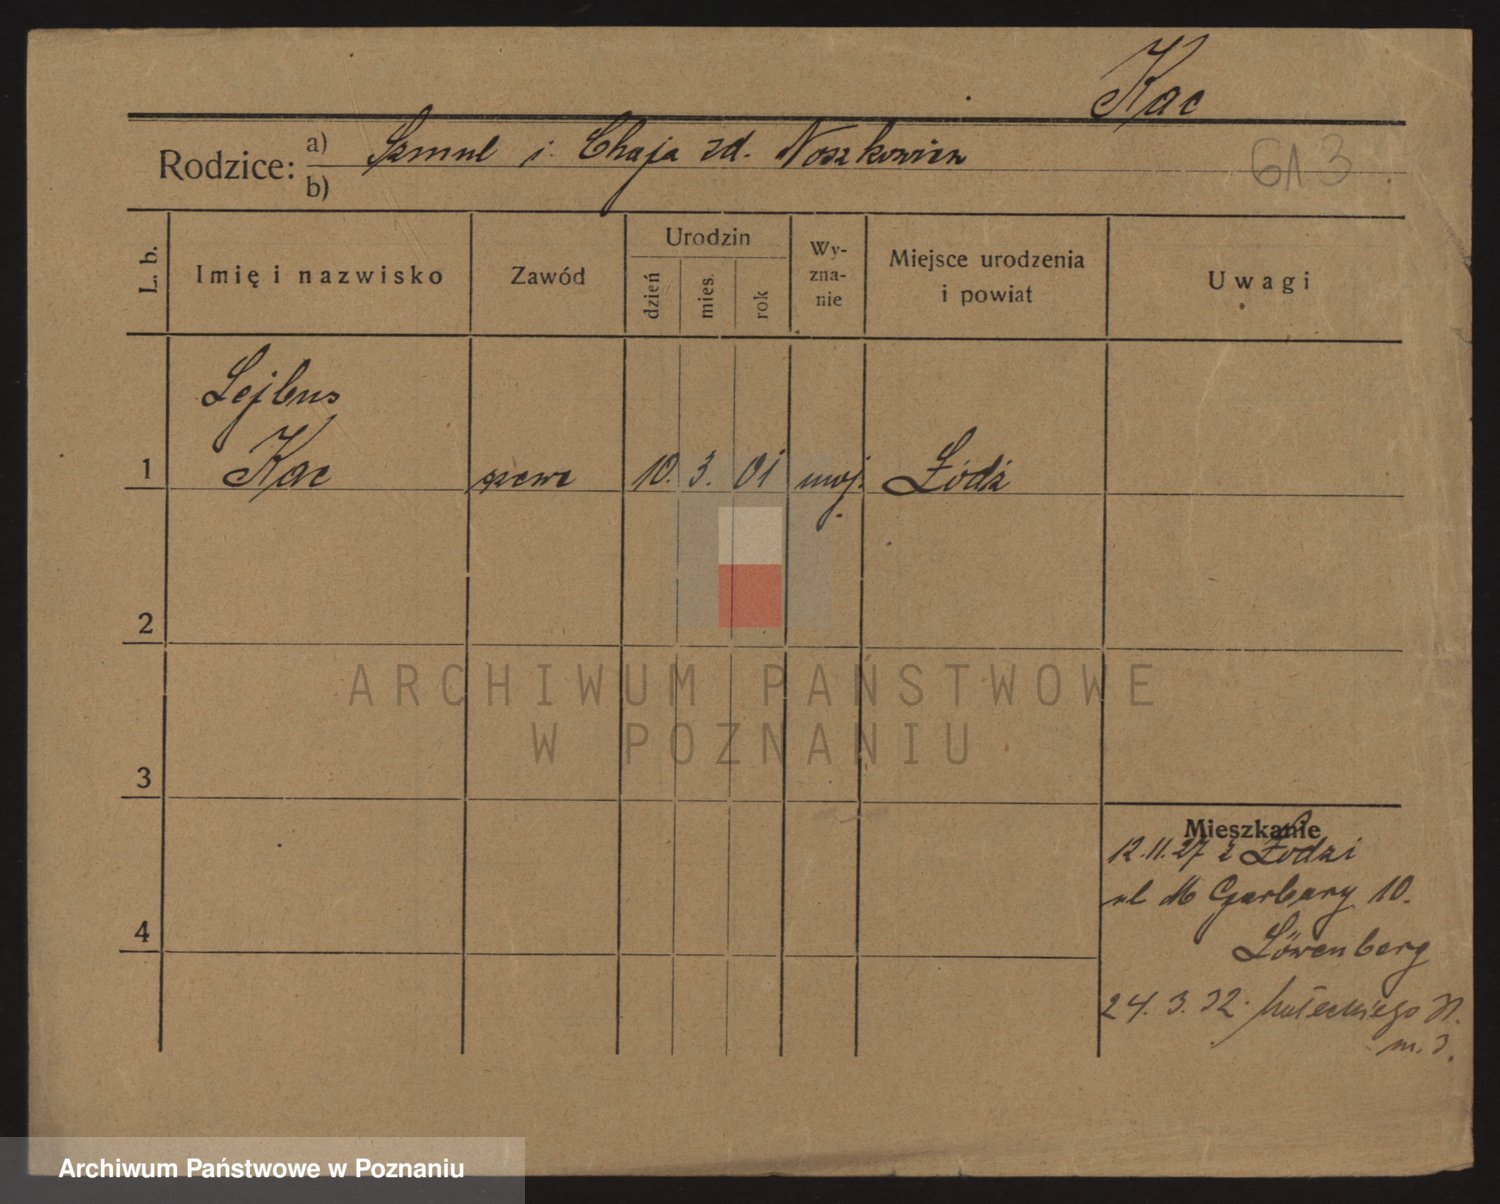 Kac
Rodzice: a) Szmul i Chaja zd. Noszkowicz
b)
613
L. b.
Imię i nazwisko
Zawód
Urodzin
dzień
mies.
rok
Wy-
zna-
nie
Miejsce urodzenia
i powiat
Uwagi
Lejbus
1 Kac szewc 10. 3. 01 moj. Łódź
2
ARCHIWUM PAŃSTWOWE
W POZNANIU
3
Mieszkanie
12.11.27 z Łodzi
ul M Garbary 10.
Löwenberg
4
24. 3. 32. Małeckiego
m. 3.
Archiwum Państwowe w Poznaniu